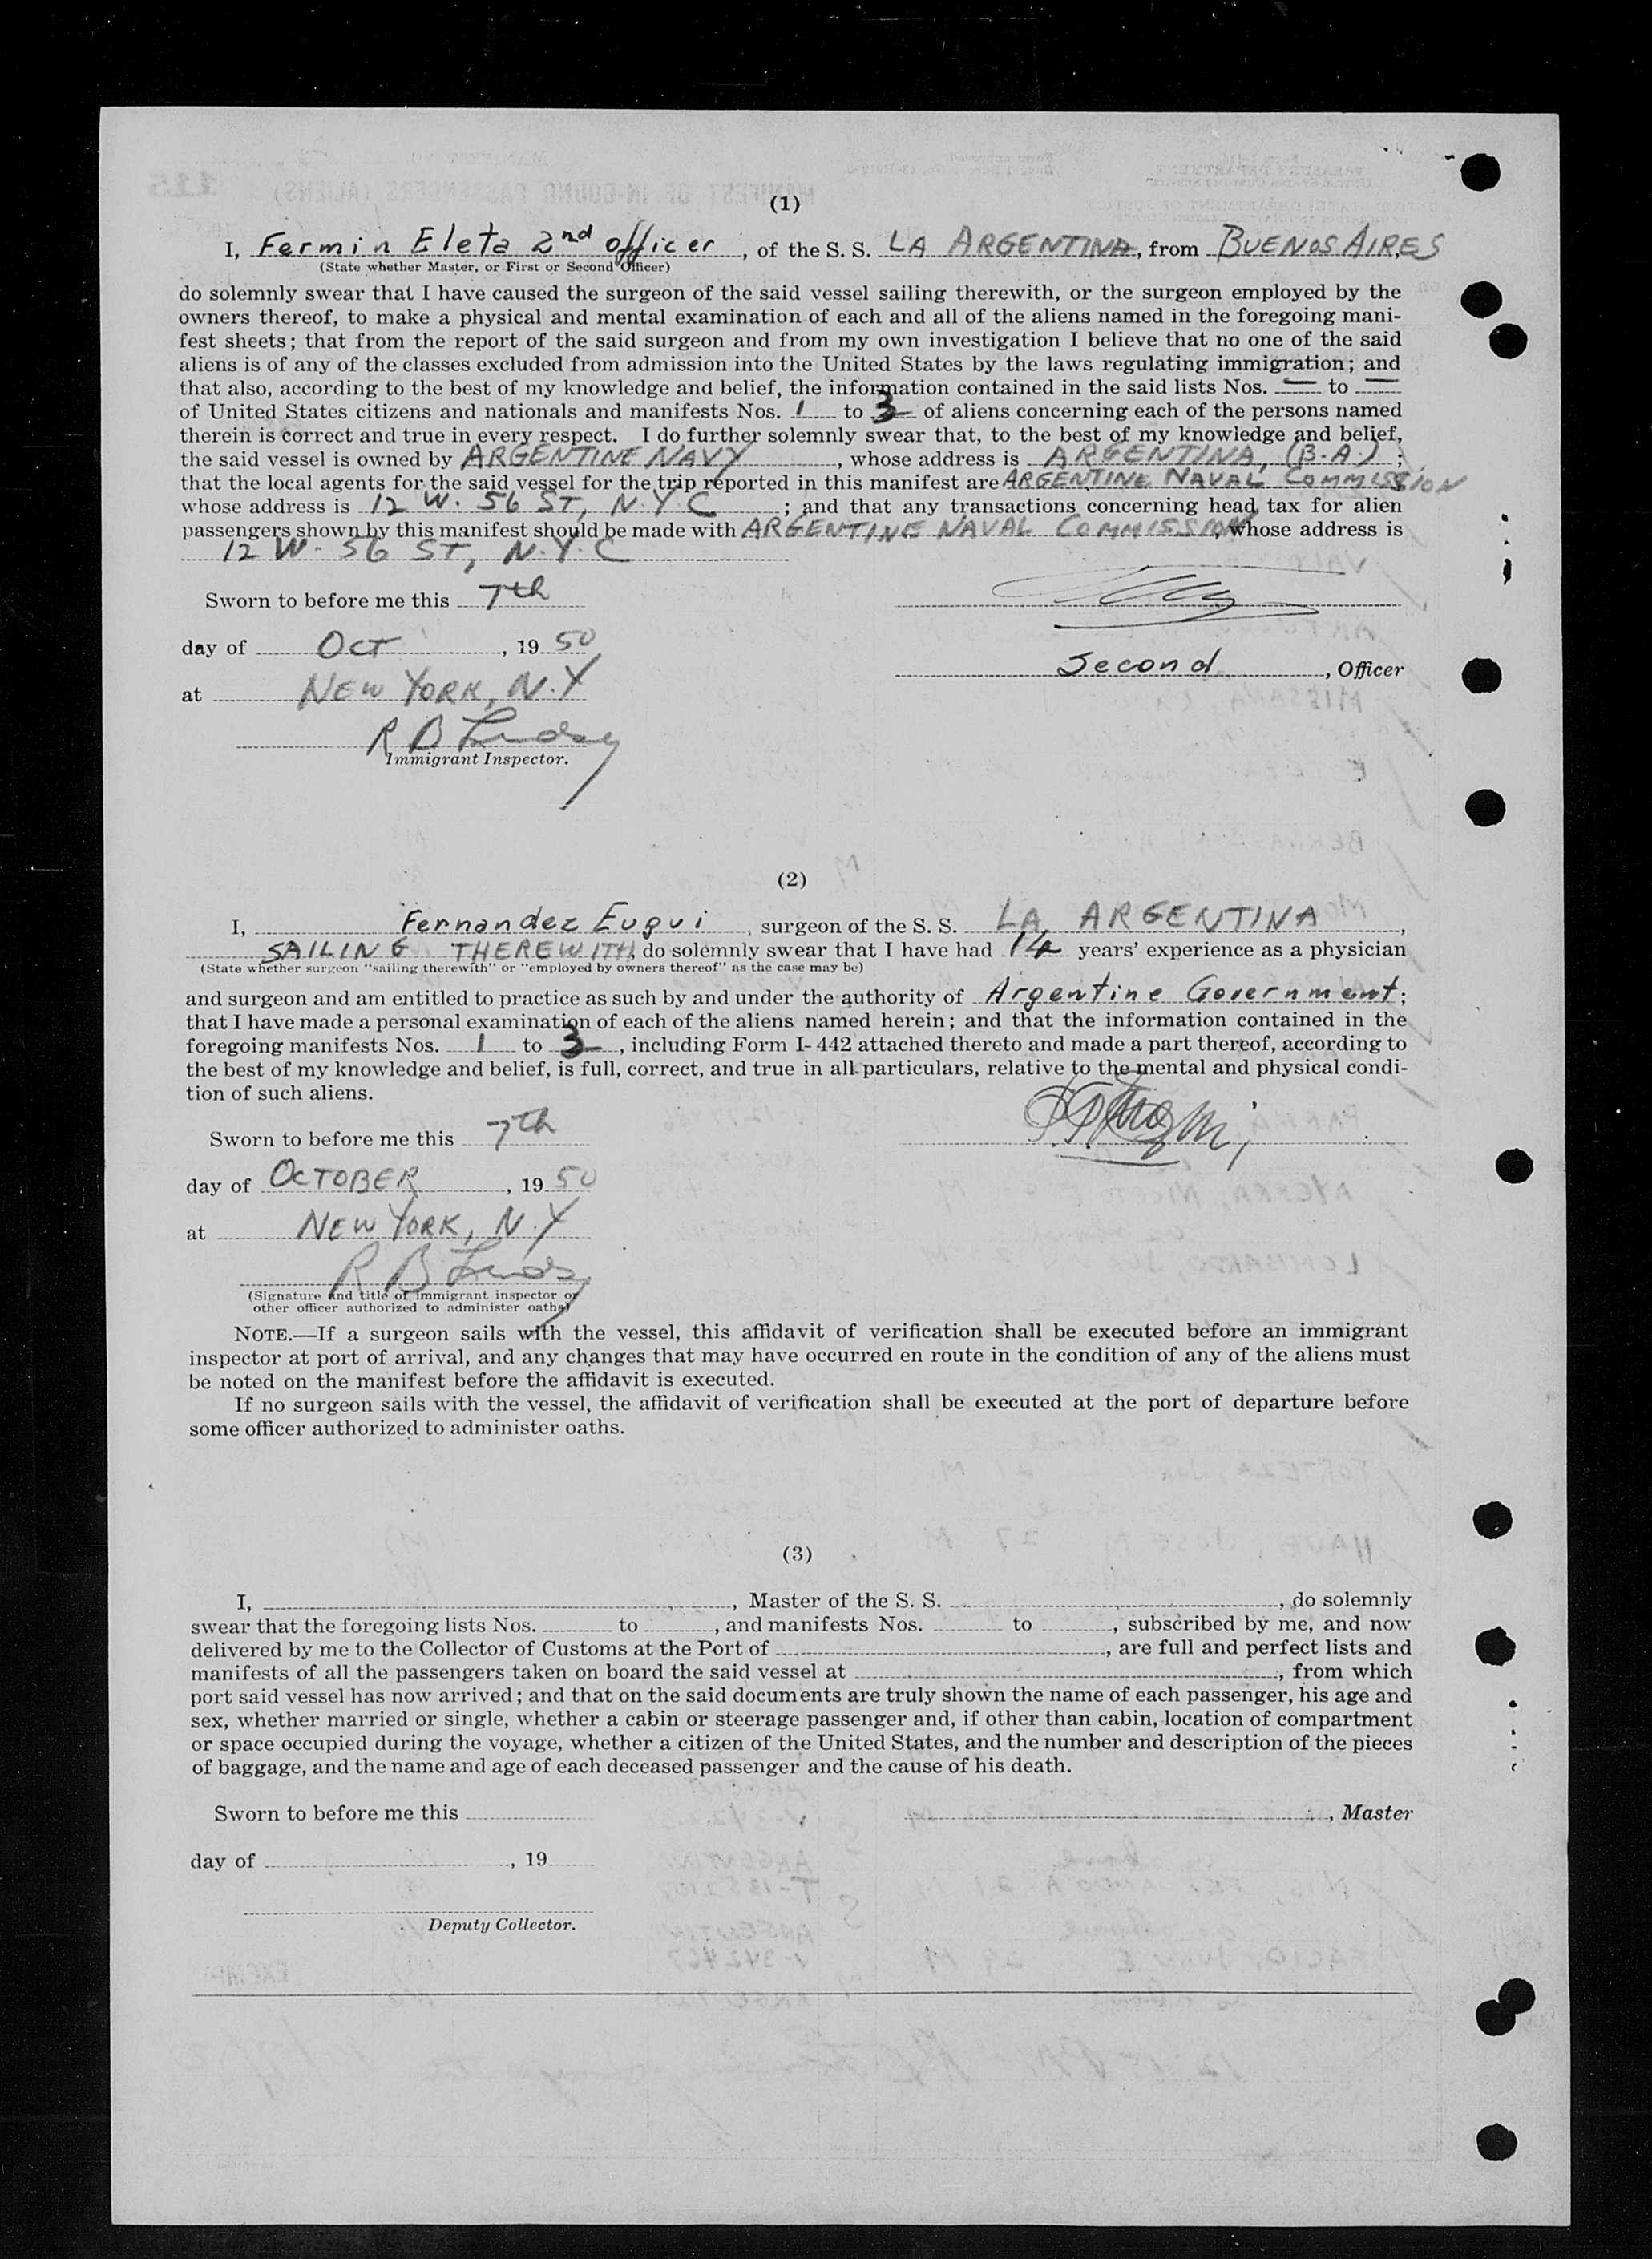 (1)
I, Fermin Eleta 2nd officer, of the S. S. LA ARGENTINA, from BUENOS AIRES
(State whether Master, or First or Second Officer)
do solemnly swear that I have caused the surgeon of the said vessel sailing therewith, or the surgeon employed by the
owners thereof, to make a physical and mental examination of each and all of the aliens named in the foregoing mani-
fest sheets; that from the report of the said surgeon and from my own investigation I believe that no one of the said
aliens is of any of the classes excluded from admission into the United States by the laws regulating immigration; and
that also, according to the best of my knowledge and belief, the information contained in the said lists Nos. — to —
of United States citizens and nationals and manifests Nos. 1 to 3 of aliens concerning each of the persons named
therein is correct and true in every respect. I do further solemnly swear that, to the best of my knowledge and belief,
the said vessel is owned by ARGENTINE NAVY, whose address is ARGENTINA, (B.A.);
that the local agents for the said vessel for the trip reported in this manifest are ARGENTINE NAVAL COMMISSION
whose address is 12 W. 56 ST, N.Y.C; and that any transactions concerning head tax for alien
passengers shown by this manifest should be made with ARGENTINE NAVAL COMMISSION, whose address is
12 W. 56 ST, N.Y.C
Sworn to before me this 7th
day of OCT, 1950
Second, Officer
at NEW YORK, N.Y
R B Lindsey
Immigrant Inspector.
(2)
I, Fernandez Eugui, surgeon of the S. S. LA ARGENTINA,
SAILING THEREWITH, do solemnly swear that I have had 14 years' experience as a physician
(State whether surgeon "sailing therewith" or "employed by owners thereof" as the case may be)
and surgeon and am entitled to practice as such by and under the authority of Argentine Government;
that I have made a personal examination of each of the aliens named herein; and that the information contained in the
foregoing manifests Nos. 1 to 3, including Form I-442 attached thereto and made a part thereof, according to
the best of my knowledge and belief, is full, correct, and true in all particulars, relative to the mental and physical condi-
tion of such aliens.
Sworn to before me this 7th
day of OCTOBER, 1950
at NEW YORK, N.Y
R B Lindsey
(Signature and title of immigrant inspector or
other officer authorized to administer oaths)
NOTE.—If a surgeon sails with the vessel, this affidavit of verification shall be executed before an immigrant
inspector at port of arrival, and any changes that may have occurred en route in the condition of any of the aliens must
be noted on the manifest before the affidavit is executed.
If no surgeon sails with the vessel, the affidavit of verification shall be executed at the port of departure before
some officer authorized to administer oaths.
(3)
I, , Master of the S. S. , do solemnly
swear that the foregoing lists Nos. to , and manifests Nos. to , subscribed by me, and now
delivered by me to the Collector of Customs at the Port of , are full and perfect lists and
manifests of all the passengers taken on board the said vessel at , from which
port said vessel has now arrived; and that on the said documents are truly shown the name of each passenger, his age and
sex, whether married or single, whether a cabin or steerage passenger and, if other than cabin, location of compartment
or space occupied during the voyage, whether a citizen of the United States, and the number and description of the pieces
of baggage, and the name and age of each deceased passenger and the cause of his death.
Sworn to before me this
, Master
day of , 19
Deputy Collector.